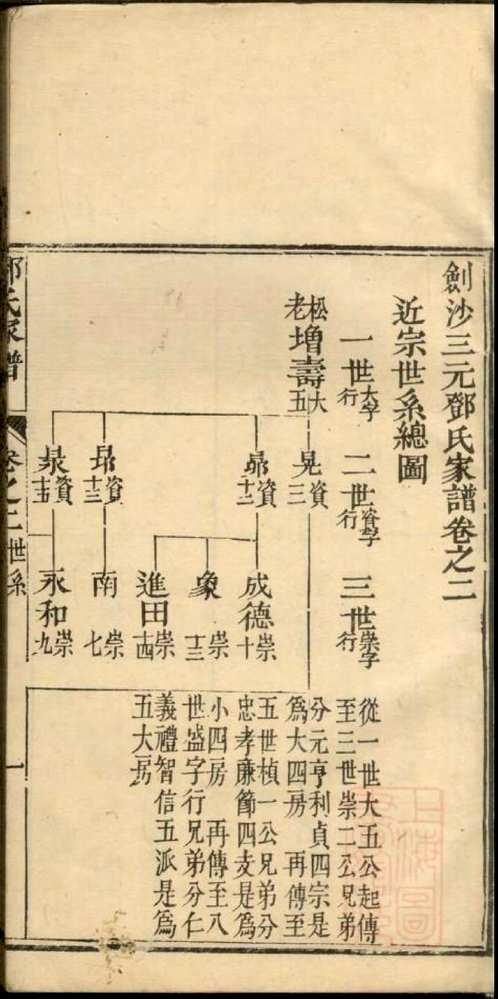 劍沙三元鄧氏家譜卷之二
近宗世系總圖
一世大字行
二世資字行
三世崇字行
松老增壽大五
晃資三
晜資十二
昂資十三
資十五
成德崇十
象崇十三
進田崇十四
南崇七
永和崇九
從一世大五公起傳
至三世崇二公兄弟
分元亨利貞四宗是
為大四房 再傳至
五世楨一公兄弟分
忠孝廉節四支是為
小四房 再傳至八
世盛字行兄弟分仁
義禮智信五派是為
五大房
鄧氏家譜
卷之二世系
一